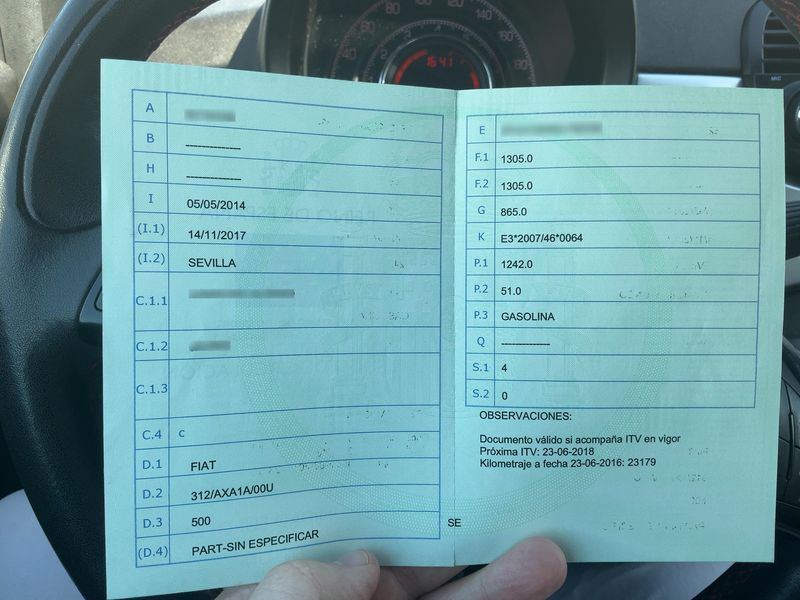 A
B --------------
H --------------
I 05/05/2014
(I.1) 14/11/2017
(I.2) SEVILLA
C.1.1
C.1.2
C.1.3
C.4 C
D.1 FIAT
D.2 312/AXA1A/00U
D.3 500
(D.4) PART-SIN ESPECIFICAR
E
F.1 1305.0
F.2 1305.0
G 865.0
K E3*2007/46*0064
P.1 1242.0
P.2 51.0
P.3 GASOLINA
Q --------------
S.1 4
S.2 0
OBSERVACIONES:
Documento válido si acompaña ITV en vigor
Próxima ITV: 23-06-2018
Kilometraje a fecha 23-06-2016: 23179
SE
80
120
140
160
180
1641